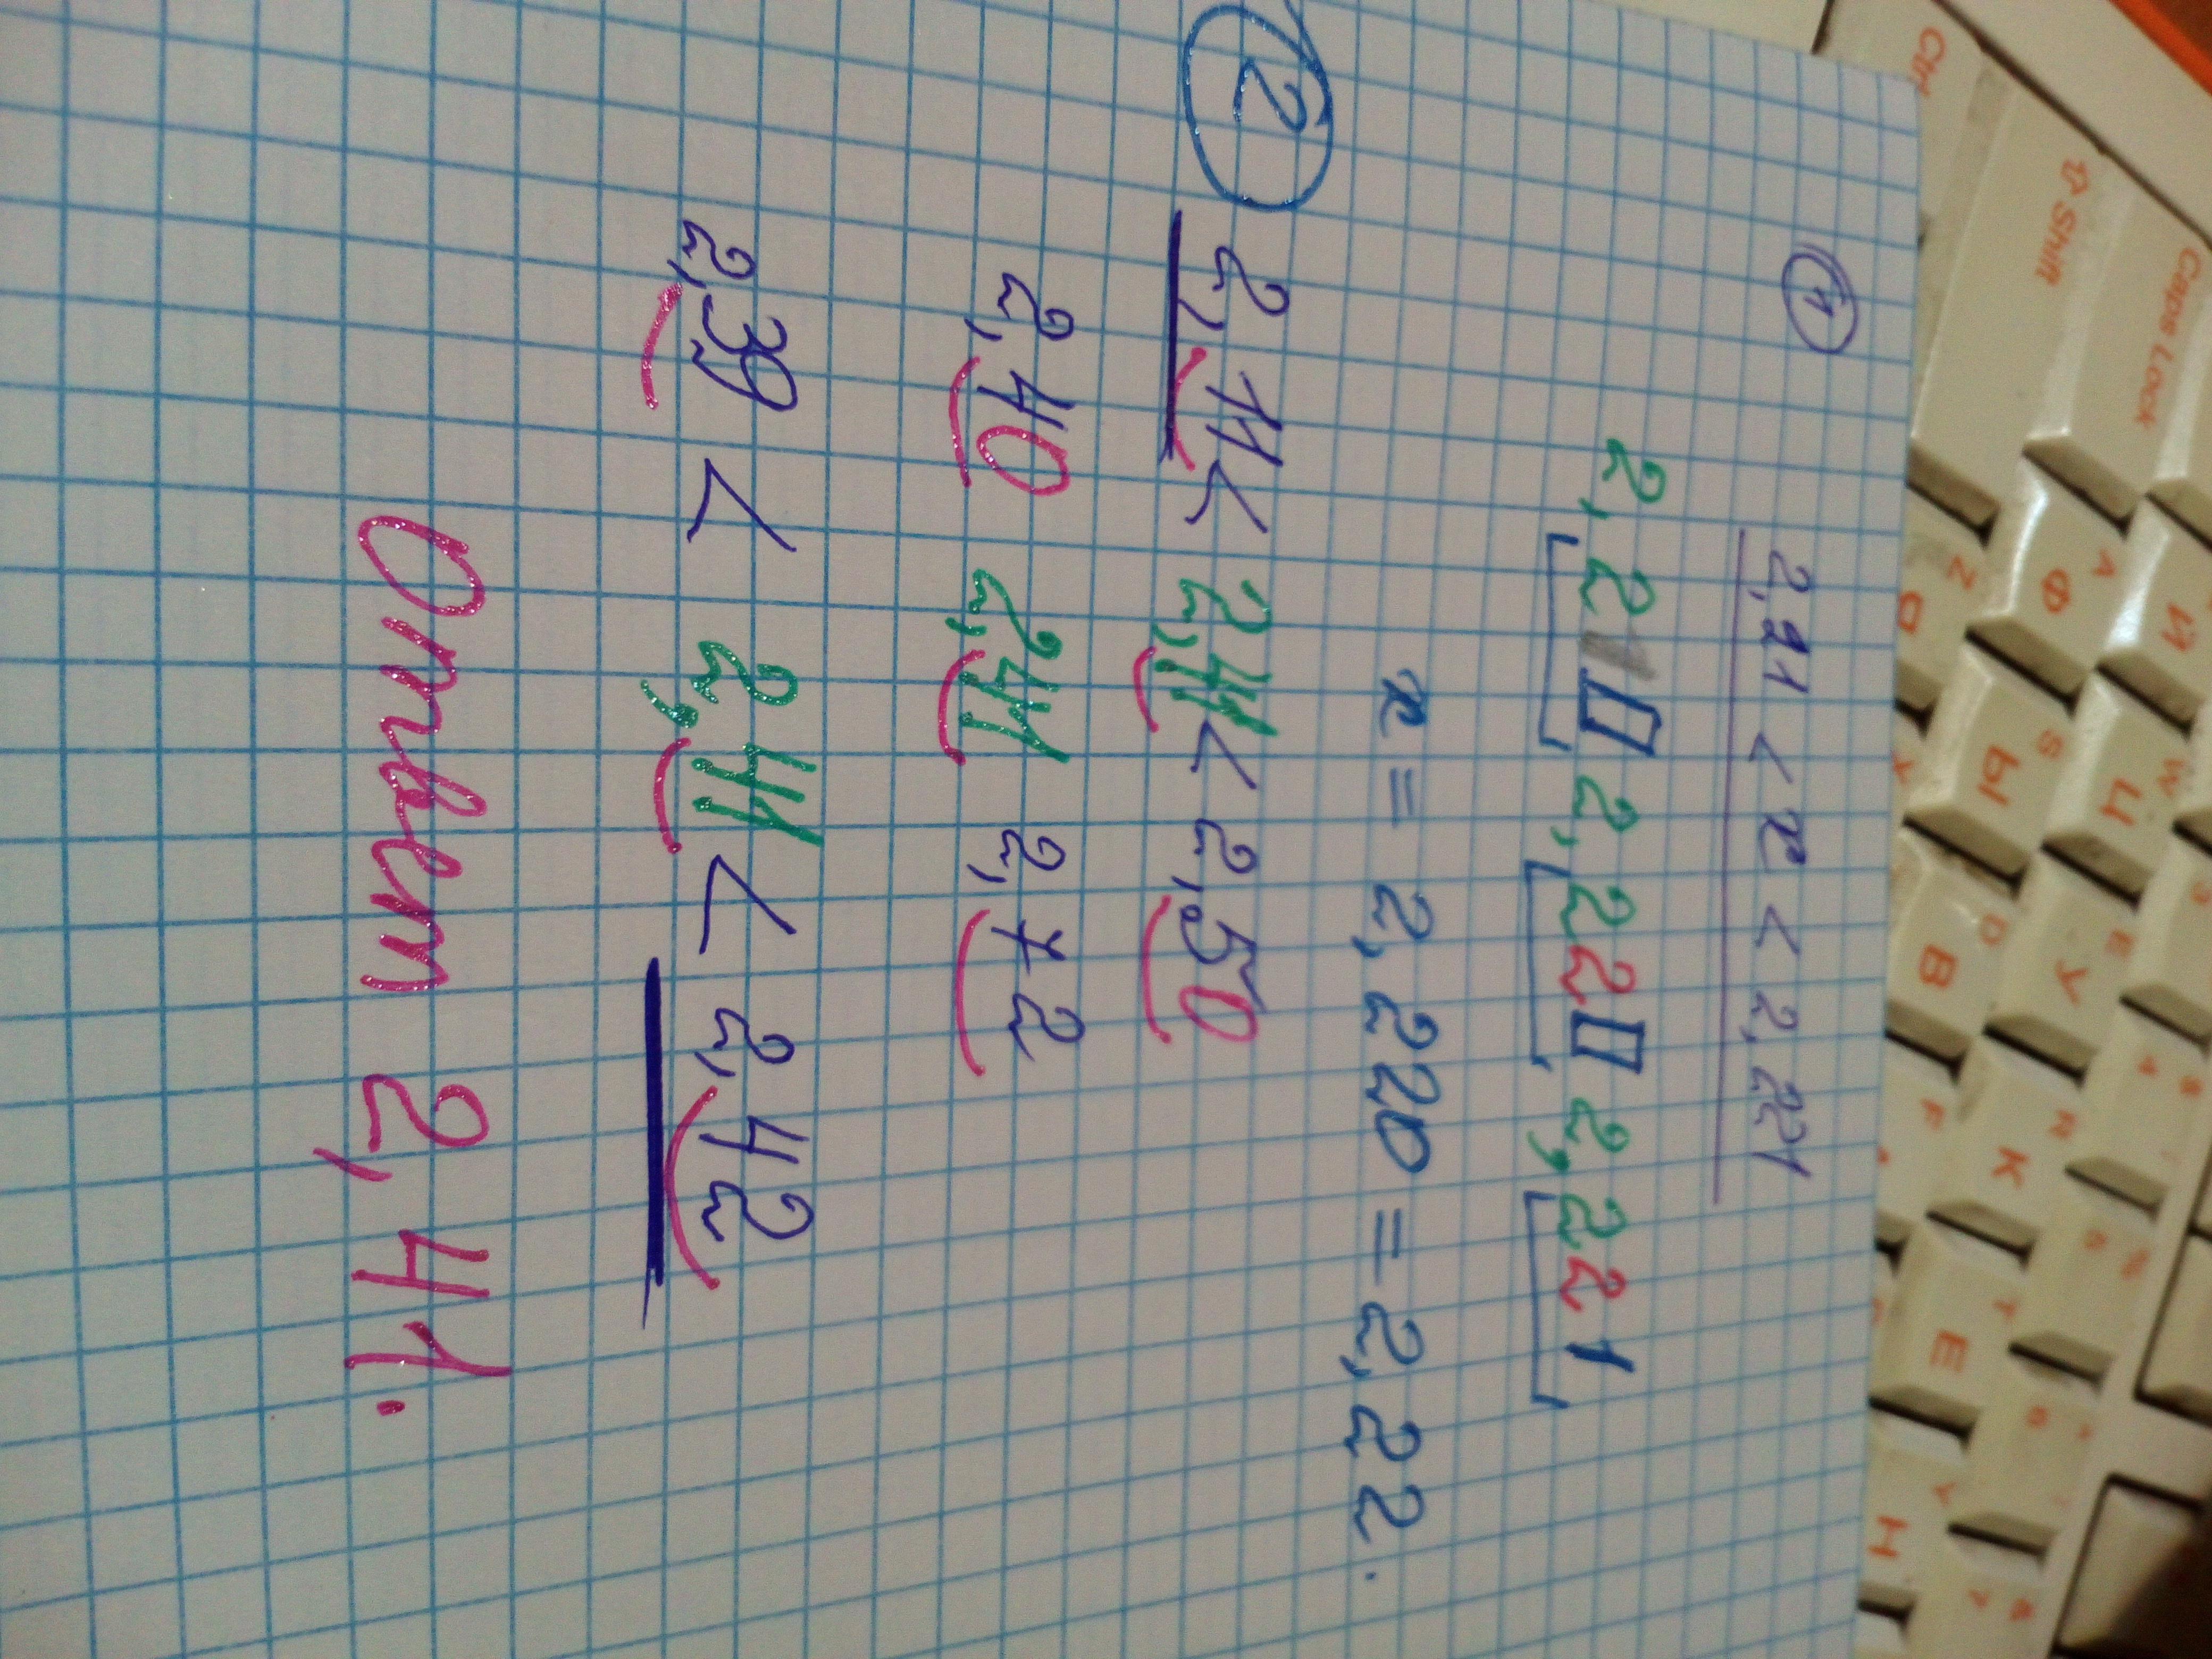 1
2,21 < x < 2,221
2,21□ 2,22□ 2,221
x = 2,220 = 2,22.
2
2,11 < 2,41 < 2,50
2,40 2,41 2,72
2,39 < 2,41 < 2,42
Ответ 2,41.
Ctrl
⇧ Shift
Caps Lock
Z Я
A Ф
Й
S Ы
W Ц
D В
E У
F
R К
T Е
Y Н